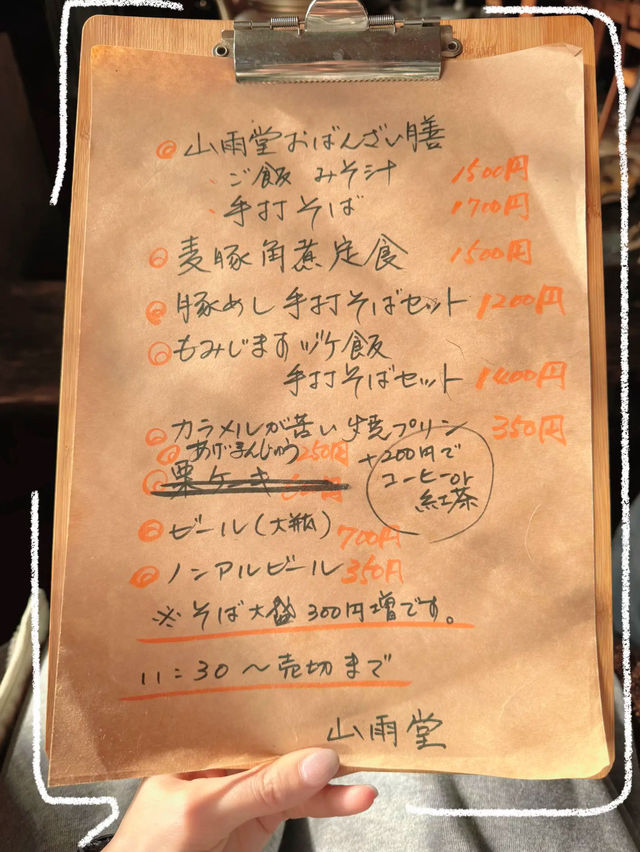 ◎ 山雨堂おばんざい膳
・ご飯 みそ汁 1500円
・手打そば 1700円
◎ 麦豚角煮定食 1500円
◎ 豚めし手打そばセット 1200円
◎ もみじますヅケ飯
手打そばセット 1400円
◎ カラメルが苦い焼プリン 350円
◎ あげまんじゅう 250円
栗ケーキ
+200円で
コーヒーor
紅茶
◎ ビール(大瓶) 700円
◎ ノンアルビール 350円
※そば大盛300円増です。
11:30〜売切まで
山雨堂